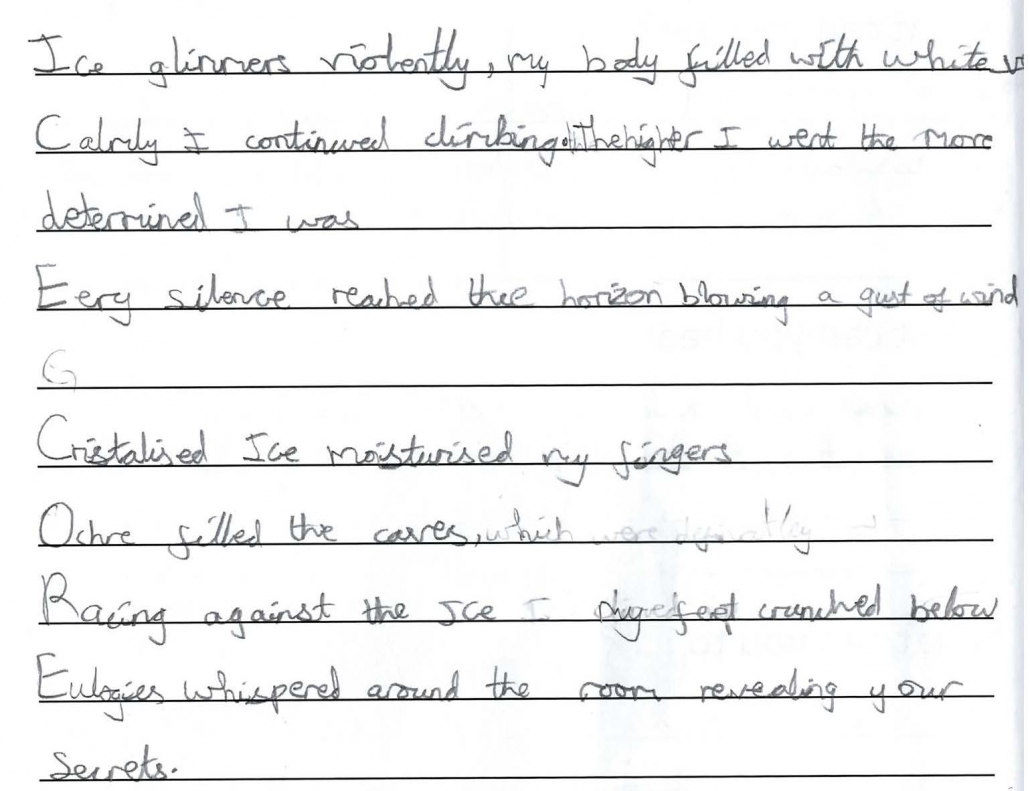 Ice glimmers violently, my body filled with white
Calmly I continued climbing. The higher I went the more
determined I was
Eery silence reached thee horizon blowing a gust of wind
G
Cristalised Ice moisturised my fingers
Ochre filled the caves, which were
Racing against the Ice I feet crunched below
Eulogies whispered around the room revealing your
secrets.